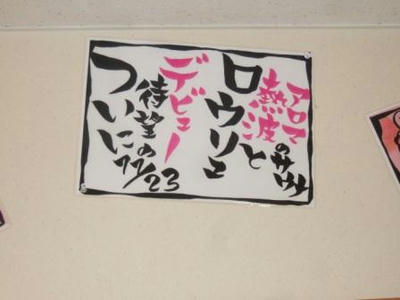 アロマのサウナ
熱波と
ロウリュ
デビュー
待望の
ついに11/23